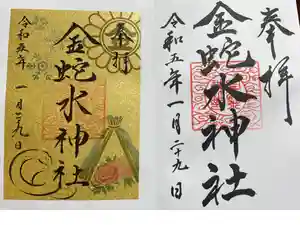 奉拝
金蛇水神社
令和五年一月二十九日
奉拝
金蛇水神社
令和五年 一月二十九日